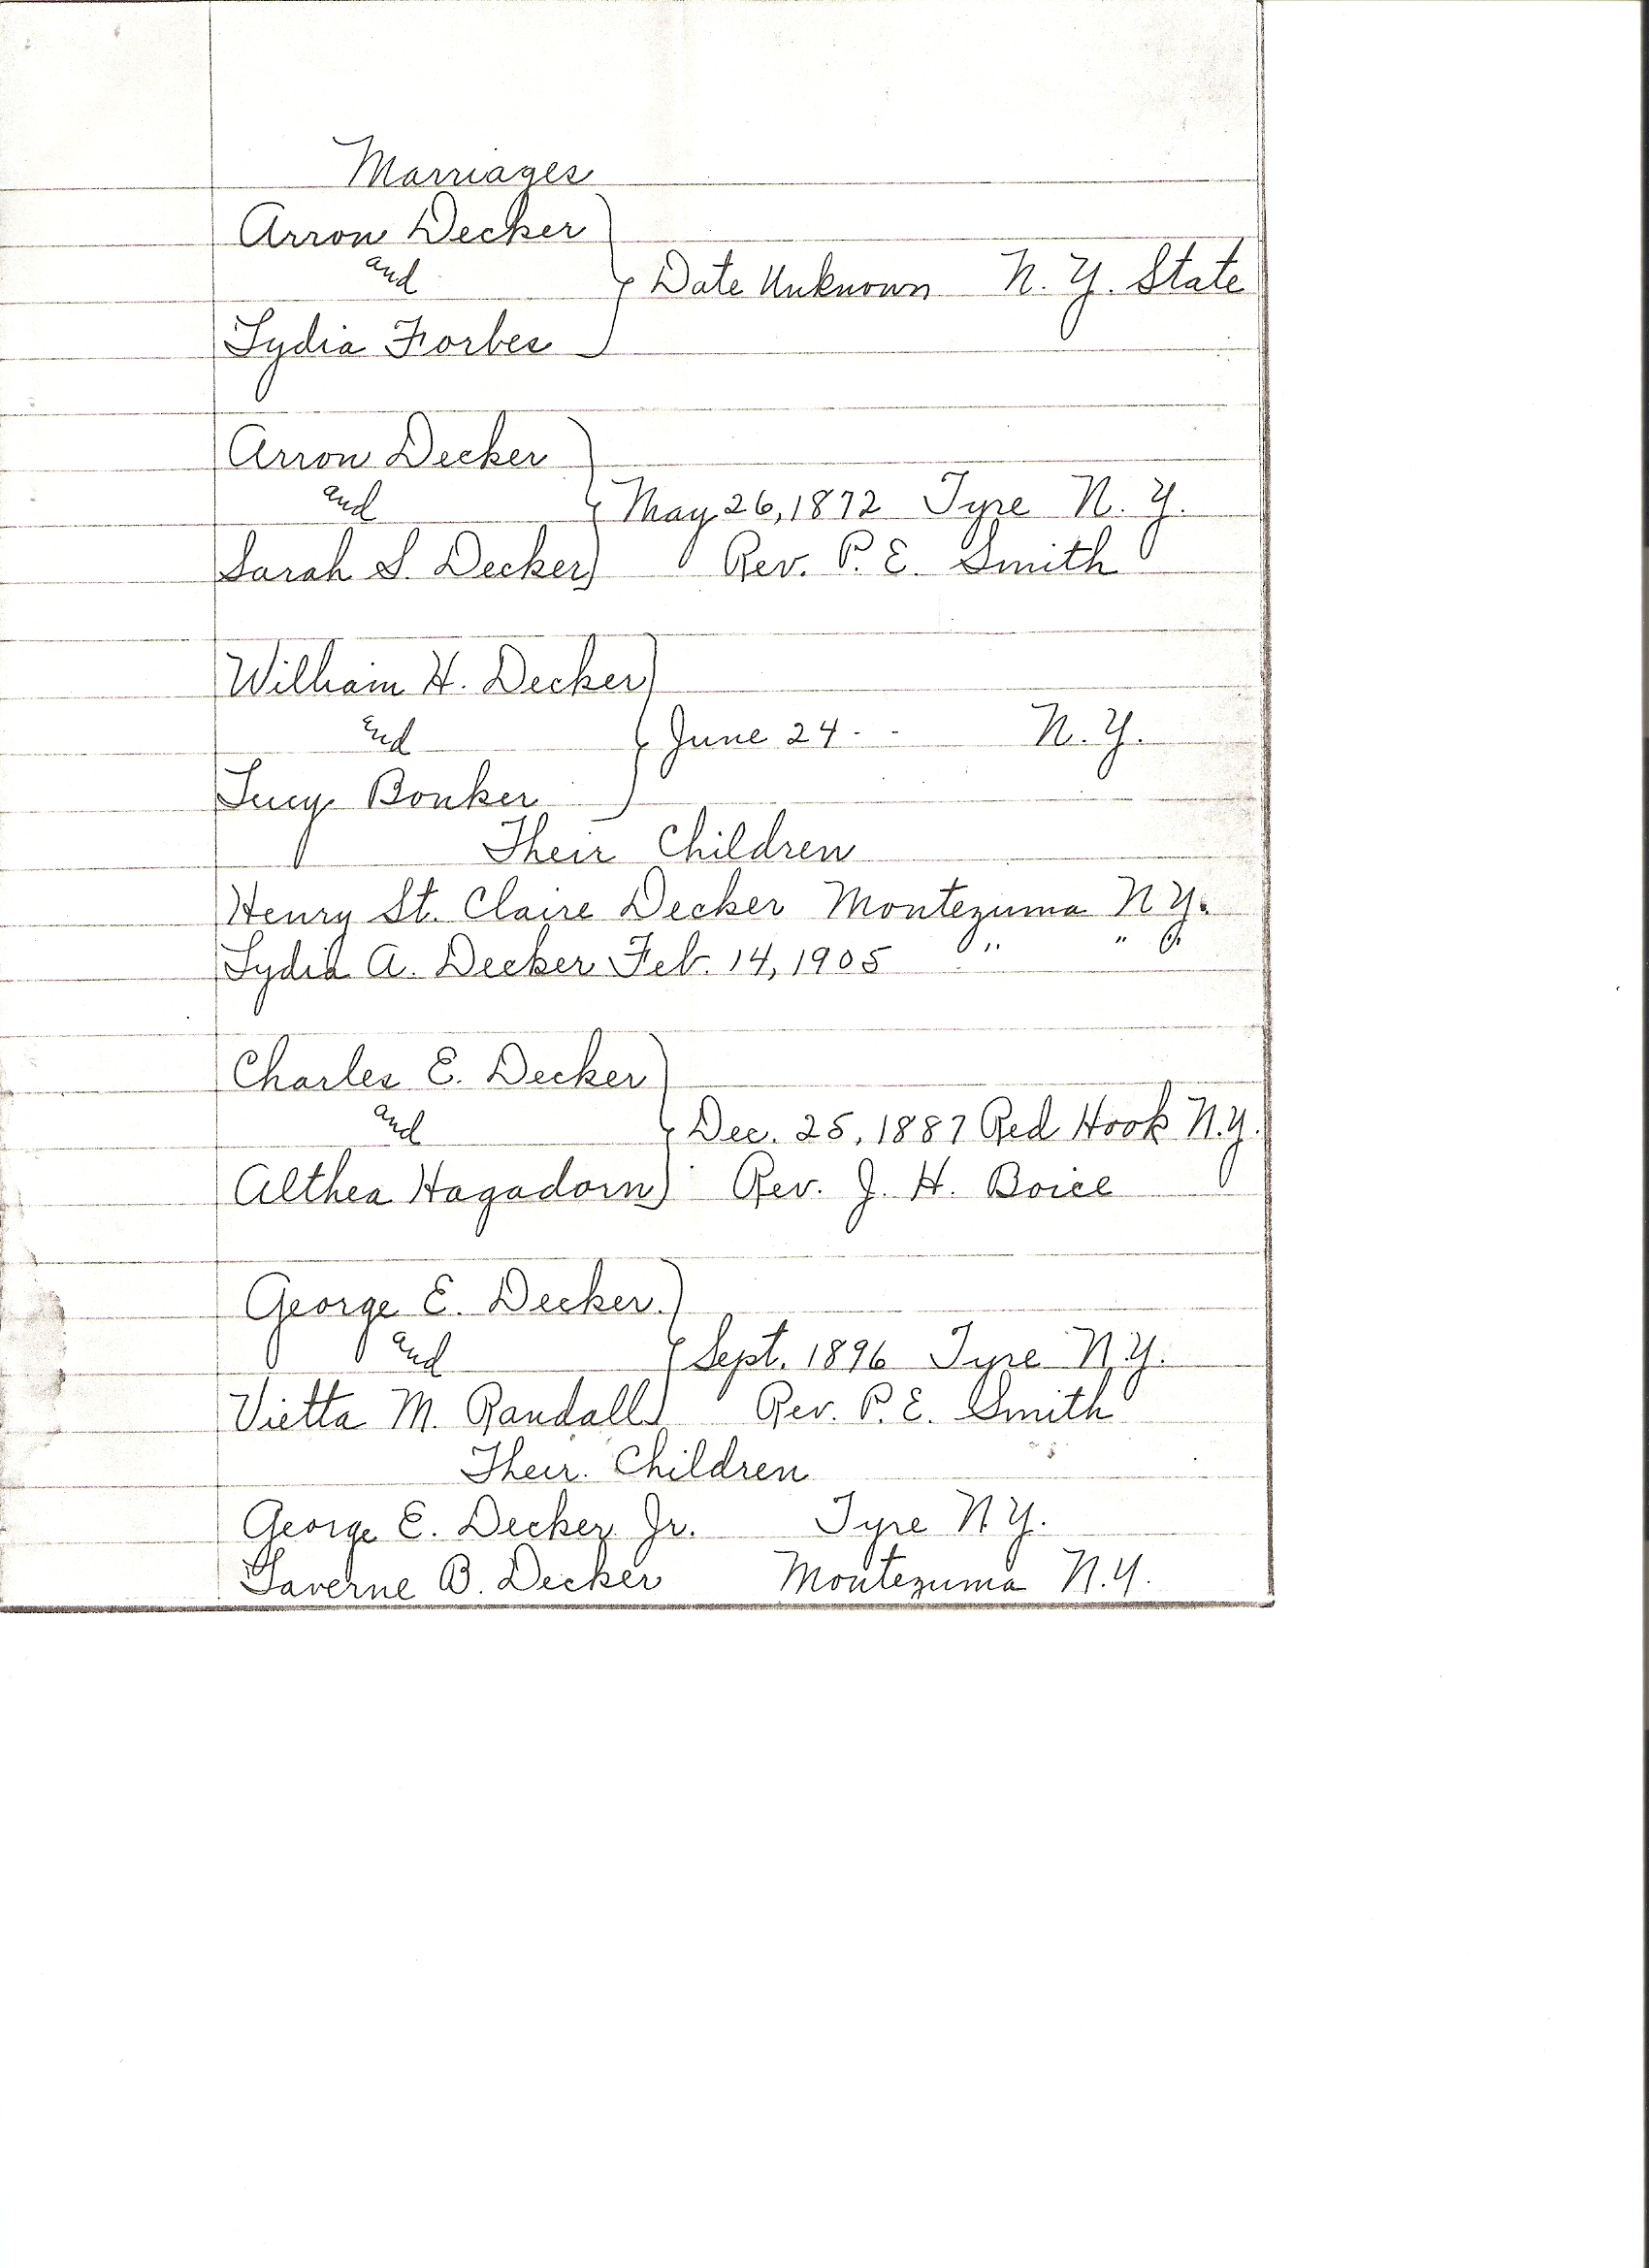 Marriages
Arron Decker
and
Date Unknown N. Y. State
Lydia Forbes
Arron Decker
and
May 26, 1872 Tyre N. Y.
Sarah S. Decker Rev. P. E. Smith
William H. Decker
and
June 24 - - N. Y.
Lucy Bonker
Their Children
Henry St. Claire Decker Montezuma N Y.
Lydia A. Decker Feb. 14, 1905 " "
Charles E. Decker
and
Dec. 25, 1887 Red Hook N.Y.
Althea Hagadorn Rev. J. H. Boice
George E. Decker
and
Sept. 1896 Tyre N.Y.
Vietta M. Randall Rev. P. E. Smith
Their Children
George E. Decker Jr. Tyre N Y.
Laverne B. Decker Montezuma N.Y.